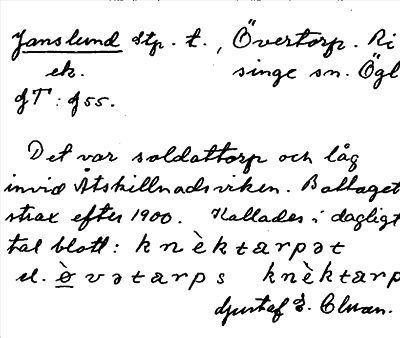 Janslund stp. t., Övertorp. Ri
ek. singe sn. Ögl
gT: g55.
Det var soldattorp och låg
invid Åtskillnadsviken. Borttaget
strax efter 1900. Kallades i dagligt
tal blott: knὲktarpət
el. ὲvətarps knὲktarp
Gustaf E. Clman.